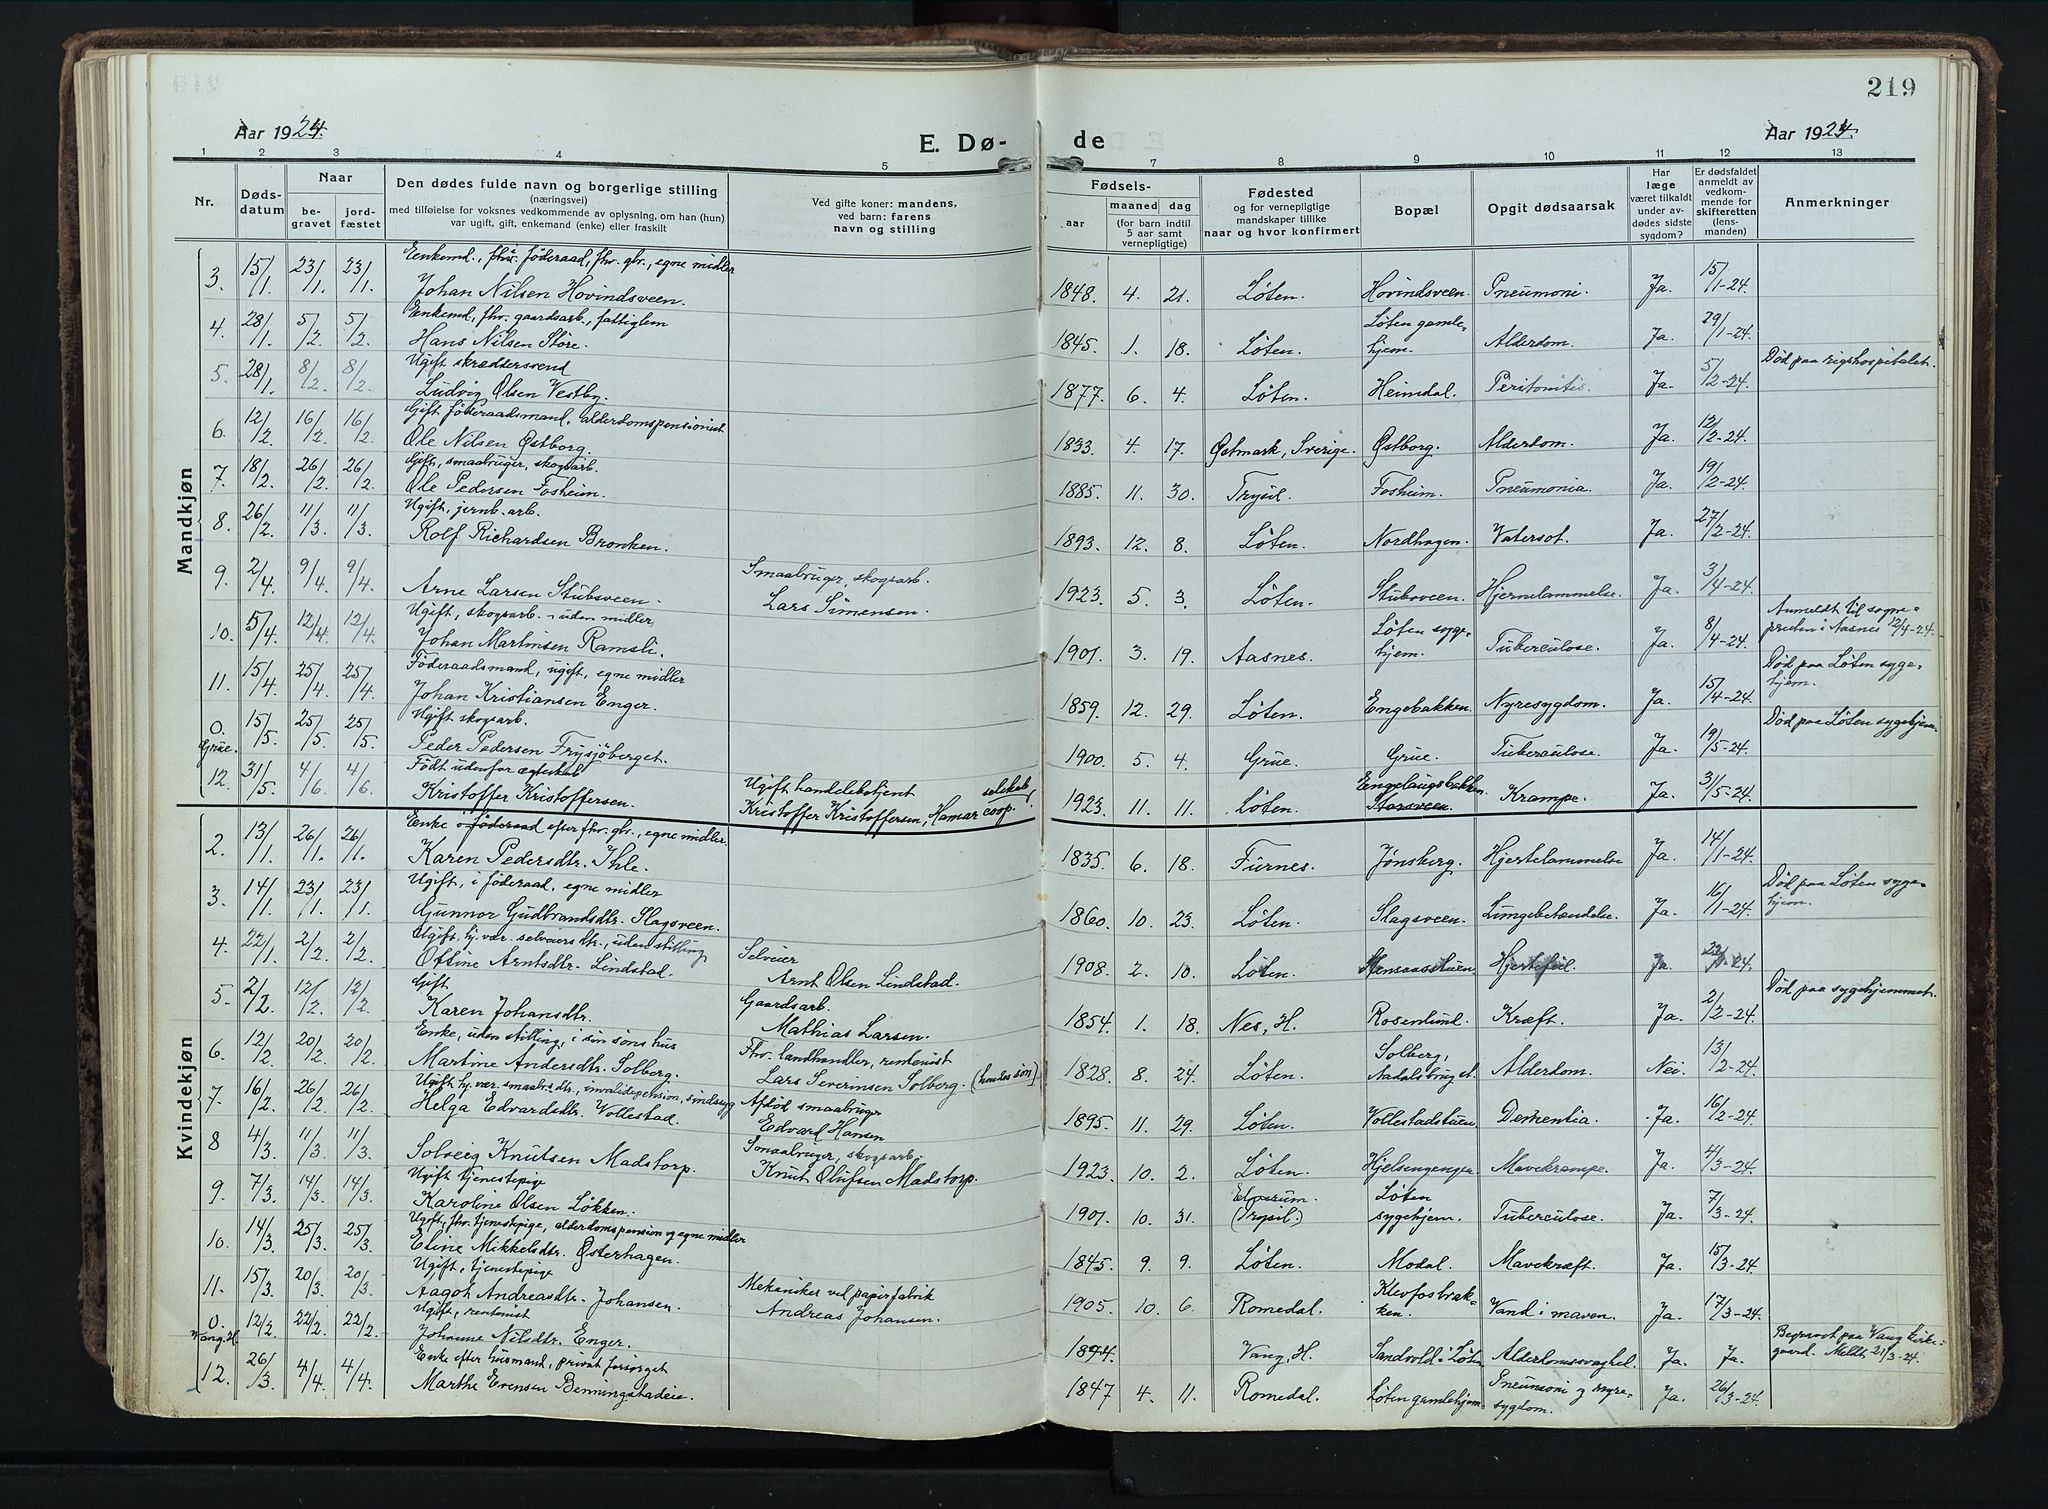 219
Aar 1924.
E. Dø-
de
Aar 1924.
1 2 3 4 5 7 8 9 10 11 12 13
Nr.
Døds-
datum
Naar
be-
gravet
jord-
fæstet
Den dødes fulde navn og borgerlige stilling
(næringsvei)
med tilføielse for voksnes vedkommende av oplysning, om han (hun)
var ugift, gift, enkemand (enke) eller fraskilt
Ved gifte koner: mandens,
ved barn: farens
navn og stilling
Fødsels-
aar
maaned dag
(for barn indtil
5 aar samt
vernepligtige)
Fødested
og for vernepligtige
mandskaper tillike
naar og hvor konfirmert
Bopæl
Opgit dødsaarsak
Har
læge
været tilkaldt
under av-
dødes sidste
sygdom?
Er dødsfaldet
anmeldt av
vedkom-
mende for
skifteretten
(lens-
manden)
Anmerkninger
Mandkjøn
Enkemd., fhv. föderaad, fhv. gbr., egne midler
3. 15/1. 23/1. 23/1. Johan Nilsen Hovindsveen. 1848. 4. 21. Løten. Hovindsveen. Pneumoni. Ja. 15/1-24.
Enkemd., fhv. gaardsarb., fattiglem
4. 28/1. 5/2. 5/2. Hans Nilsen Støre. 1845. 1. 18. Løten. Løten gamle-
hjem. Alderdom. Ja. 29/1-24.
Ugift skræddersvend
5. 28/1. 8/2. 8/2. Ludvig Olsen Vestby. 1877. 6. 4. Løten. Heimdal. Peritonitis. Ja. 5/2-24. Død paa rigshospitalet.
Gift föderaadsmand, alderdomspensionist
6. 12/2. 16/2. 16/2. Ole Nilsen Østborg. 1833. 4. 17. Østmark, Sverige. Østborg. Alderdom. Ja. 12/2-24.
Gift, smaabruger, skogsarb.
7. 18/2. 26/2. 26/2. Ole Pedersen Fosheim. 1885. 11. 30. Trysil. Fosheim. Pneumonia. Ja. 19/2-24.
Ugift, jernb. arb.
8. 26/2. 11/3. 11/3. Rolf Richardsen Bronken. 1893. 12. 8. Løten. Nordhagen. Vatersot. Ja. 27/2-24.
Smaabruger, skogsarb.
9. 2/4. 9/4. 9/4. Arne Larsen Stubsveen. Lars Simensen. 1923. 5. 3. Løten. Stubsveen. Hjernelammelse. Ja. 3/4-24.
Ugift, skogsarb. uden midler
10. 5/4. 12/4. 12/4. Johan Martinsen Ramsli. 1901. 3. 19. Aasnes. Løten syge-
hjem. Tuberculose. Ja. 8/4-24. Anmeldt til sogne-
presten i Aasnes 12/4-24.
Föderaadsmand, ugift, egne midler
11. 15/4. 25/4. 25/4. Johan Kristiansen Enger. 1859. 12. 29. Løten. Engebakken. Nyresygdom. Ja. 15/4-24. Død paa Løten syge-
hjem.
Ugift skogsarb.
0. Grue. 15/5. 25/5. 25/5. Peder Pedersen Frysjöberget. 1900. 5. 4. Grue. Grue. Tuberculose. Ja. 19/5-24. Død paa Løten sygehjem.
Födt udenfor egteskab
12. 31/5. 4/6. 4/6. Kristoffer Kristoffersen. Ugift handelsbetjent
Kristoffer Kristoffersen, Hamar coop. selskab. 1923. 11. 11. Løten. Engelaugsbakken
Storsveen. Krampe. Ja. 31/5-24.
Kvindekjøn
Enke i föderaad efter fhv. gbr., egne midler
2. 13/1. 26/1. 26/1. Karen Pedersdtr. Ihle. 1835. 6. 18. Furnes. Jønsberg. Hjertelammelse Ja. 14/1-24.
Ugift, i föderaad, egne midler
3. 14/1. 23/1. 23/1. Gunnor Gudbrandsdtr. Slagsveen. 1860. 10. 23. Løten. Slagsveen. Lungebetændelse. Ja. 16/1-24. Død paa Løten syge-
hjem.
Ugift, hj. vær. selveiers dtr., uden stilling
4. 22/1. 2/2. 2/2. Otline Arntsdtr. Lindstad. Selveier
Arnt Olsen Lindstad. 1908. 2. 10. Løten. Stensaasstuen Hjertefeil. Ja.
Gift
5. 2/2. 12/2. 12/2. Karen Johansdtr. Gaardsarb.
Mathias Larsen. 1854. 1. 18. Nes, H. Rosenlund. Kræft. Ja. 2/2-24. Død paa sygehjemmet.
Enke, uden stilling, i sin søns hus
6. 12/2. 20/2. 20/2. Martine Andersdtr. Solberg. Fhv. landhandler, rentenist
Lars Severinsen Solberg. (hendes søn) 1828. 8. 24. Løten. Solberg,
Aadalsbruget. Alderdom. Nei. 13/2-24.
Ugift hj. vær. smaabr. dtr, invalidepension, sindssyg
7. 16/2. 26/2. 26/2. Helga Edvardsdtr. Vollestad. Afdød smaabruger
Edvard Hansen 1895. 11. 29. Løten. Vollestadstuen Dementia. Ja. 16/2-24.
8 4/3. 11/3. 11/3. Solveig Knutsen Madstorp. Smaabruger, skogsarb.
Knut Olufsen Madstorp. 1923. 10. 2. Løten. Hjelsengenger. Mavekrampe. Ja. 4/3-24.
Ugift tjenestepige
9. 7/3. 14/3. 14/3. Karoline Olsen Løkken. 1901. 10. 31. Elverum.
(Trysil.) Løten
sygehjem. Tuberculose. Ja. 7/3-24.
Ugift, fhv. tjenestepige, alderdomspension og egne midler
10. 14/3. 25/3. 25/3. Eline Mikkelsdtr. Østerhagen. 1845. 9. 9. Løten. Modal. Mavekræft. Ja. 15/3-24.
Ugift, tjenestepige
11. 15/3. 20/3. 20/3. Aagot Andreasdtr. Johansen. Mekaniker ved papirfabrik
Andreas Johansen. 1905. 10. 6. Romedal. Klevfosbrak-
ken. Vand i maven. Ja. 17/3-24.
Ugift, rentenist
0. Vang. H. 12/2. 22/2. 22/2. Johanne Nilsdtr. Enger. 1844. Vang, H. Sandvold i Løten Alderdomssvaghet. Ja Ja. Begravet paa Vang kirke-
gaard. Meldt 21/3-24.
Enke efter husmand, privat forsørget
12. 26/3. 4/4. 4/4. Marthe Evensen Benningstadeie. 1847 4. 11. Romedal. Løten gamlehjem Pneumoni og nyre-
sygdom. Ja. 26/3-24.